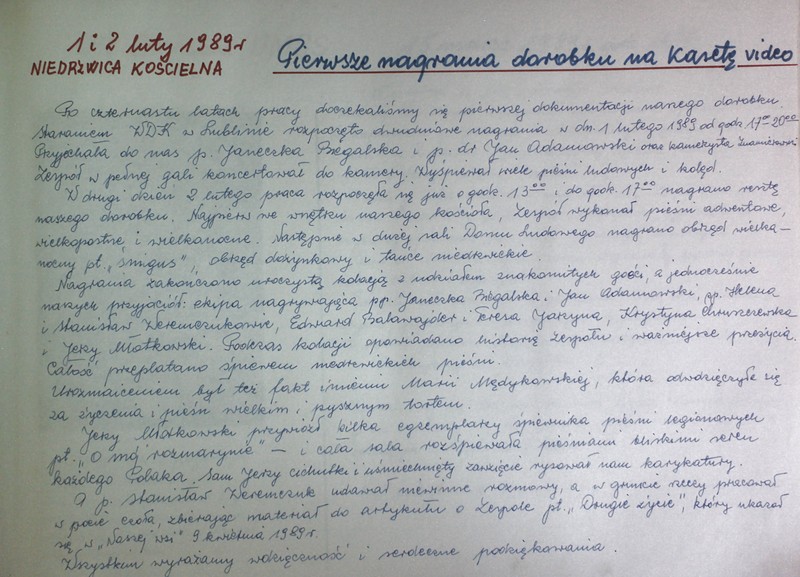 1 i 2 luty 1989 r
NIEDRZWICA KOŚCIELNA
Pierwsze nagrania dorobku na kasetę video
Po czternastu latach pracy doczekaliśmy się pierwszej dokumentacji naszego dorobku.
Staraniem WDK w Lublinie rozpoczęto dwudniowe nagrania w dn. 1 lutego 1989 od godz. 17⁰⁰ 20⁰⁰
Przyjechała do nas p. Janeczka Biegalska i p. dr Jan Adamowski oraz kamerzysta
Zespół w pełnej gali koncertował do kamery. Wyśpiewał wiele pieśni ludowych i kolęd.
W drugi dzień 2 lutego praca rozpoczęła się już o godz. 13⁰⁰ i do godz. 17⁰⁰ nagrano resztę
naszego dorobku. Najpierw we wnętrzu naszego kościoła, Zespół wykonał pieśni adwentowe,
wielkopostne i wielkanocne. Następnie w dużej sali Domu Ludowego nagrano obrzęd wielka-
nocny pt. „Śmigus", obrzęd dożynkowy i tańce niedrzwickie.
Nagrania zakończono uroczystą kolacją z udziałem znakomitych gości, a jednocześnie
naszych przyjaciół: ekipa nagrywająca pp. Janeczka Biegalska i Jan Adamowski, pp. Helena
i Stanisław Weremczukowie, Edward Balawejder i Teresa Jarzyna, Krystyna Chruszczewska
i Jerzy Młotkowski. Podczas kolacji opowiadano historię zespołu i ważniejsze przeżycia.
Całość przeplatano śpiewem niedrzwickich pieśni.
Urozmaiceniem był też fakt imienin Marii Mędykowskiej, która odwdzięczyła się
za życzenia i pieśń wielkim i pysznym tortem.
Jerzy Młotkowski przywiózł kilka egzemplarzy śpiewnika pieśni legionowych
pt. „O mój rozmarynie" – i cała sala rozśpiewała pieśniami bliskimi sercu
każdego Polaka. Sam Jerzy cichutki i uśmiechnięty zawzięcie rysował nam karykatury.
A p. Stanisław Weremczuk udawał niewinne rozmowy, a w gruncie rzeczy pracował
w pocie czoła, zbierając materiał do artykułu o Zespole pt. „Drugie życie", który ukazał
się w „Naszej wsi" 9 kwietnia 1989 r.
Wszystkim wyrażamy wdzięczność i serdeczne podziękowania.